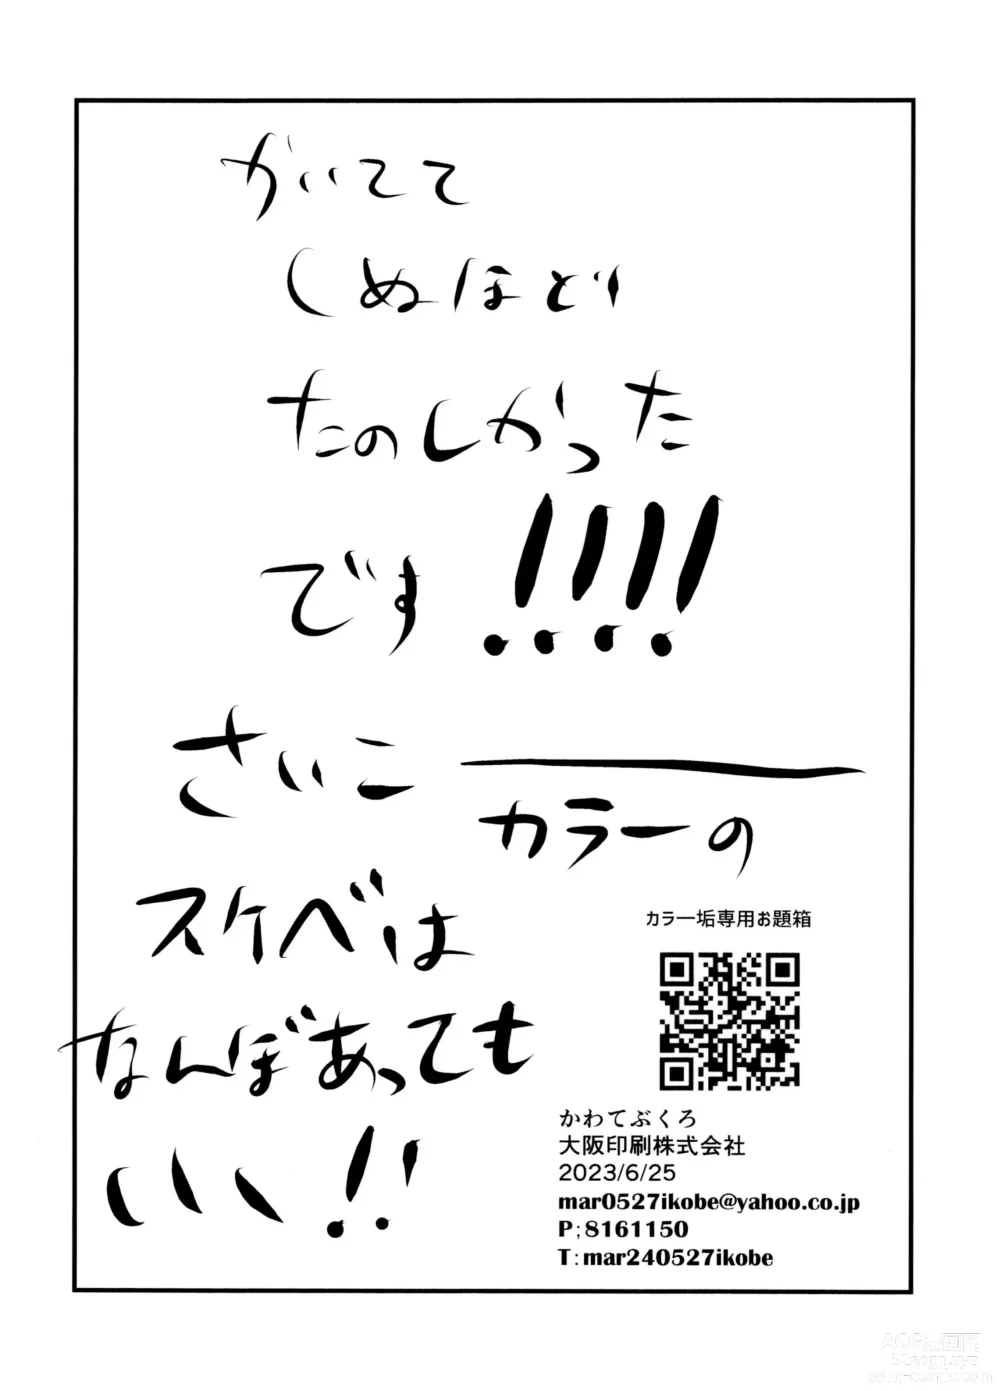 かいてて
しぬほど
たのしかった
です!!!!
さいこ――
カラーの
スケベは
なんぼあっても
いい!!
カラー垢専用お題箱
かわてぶくろ
大阪印刷株式会社
2023/6/25
mar0527ikobe@yahoo.co.jp
P;8161150
T:mar240527ikobe